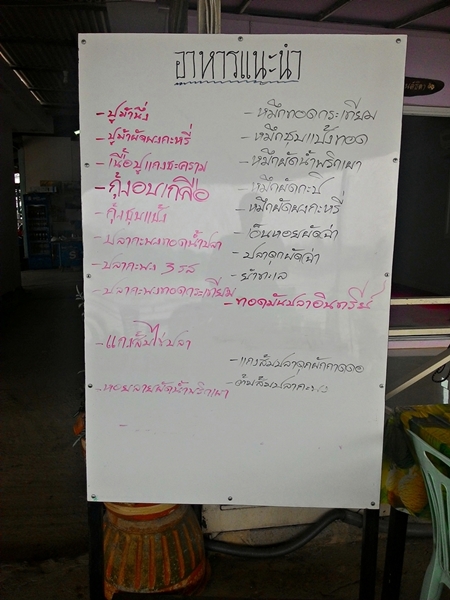 อาหารแนะนำ
- ปูม้านึ่ง
- ปูม้าผัดผงกะหรี่
- เนื้อปูแกงชะคราม
- กุ้งอบเกลือ
- กุ้งชุบแป้ง
- ปลากะพงทอดน้ำปลา
- ปลากะพง 3 รส
- ปลากะพงทอดกระเทียม
- แกงส้มไข่ปลา
- หอยลายผัดน้ำพริกเผา
- หมึกทอดกระเทียม
- หมึกชุบแป้งทอด
- หมึกผัดน้ำพริกเผา
- หมึกผัดกะปิ
- หมึกผัดผงกะหรี่
- เอ็นหอยผัดฉ่า
- ปลาดุกผัดฉ่า
- ยำทะเล
- ทอดมันปลาอินทรีย์
- แกงส้มปลาดุกผักกาดดอง
- ต้มส้มปลากะพง